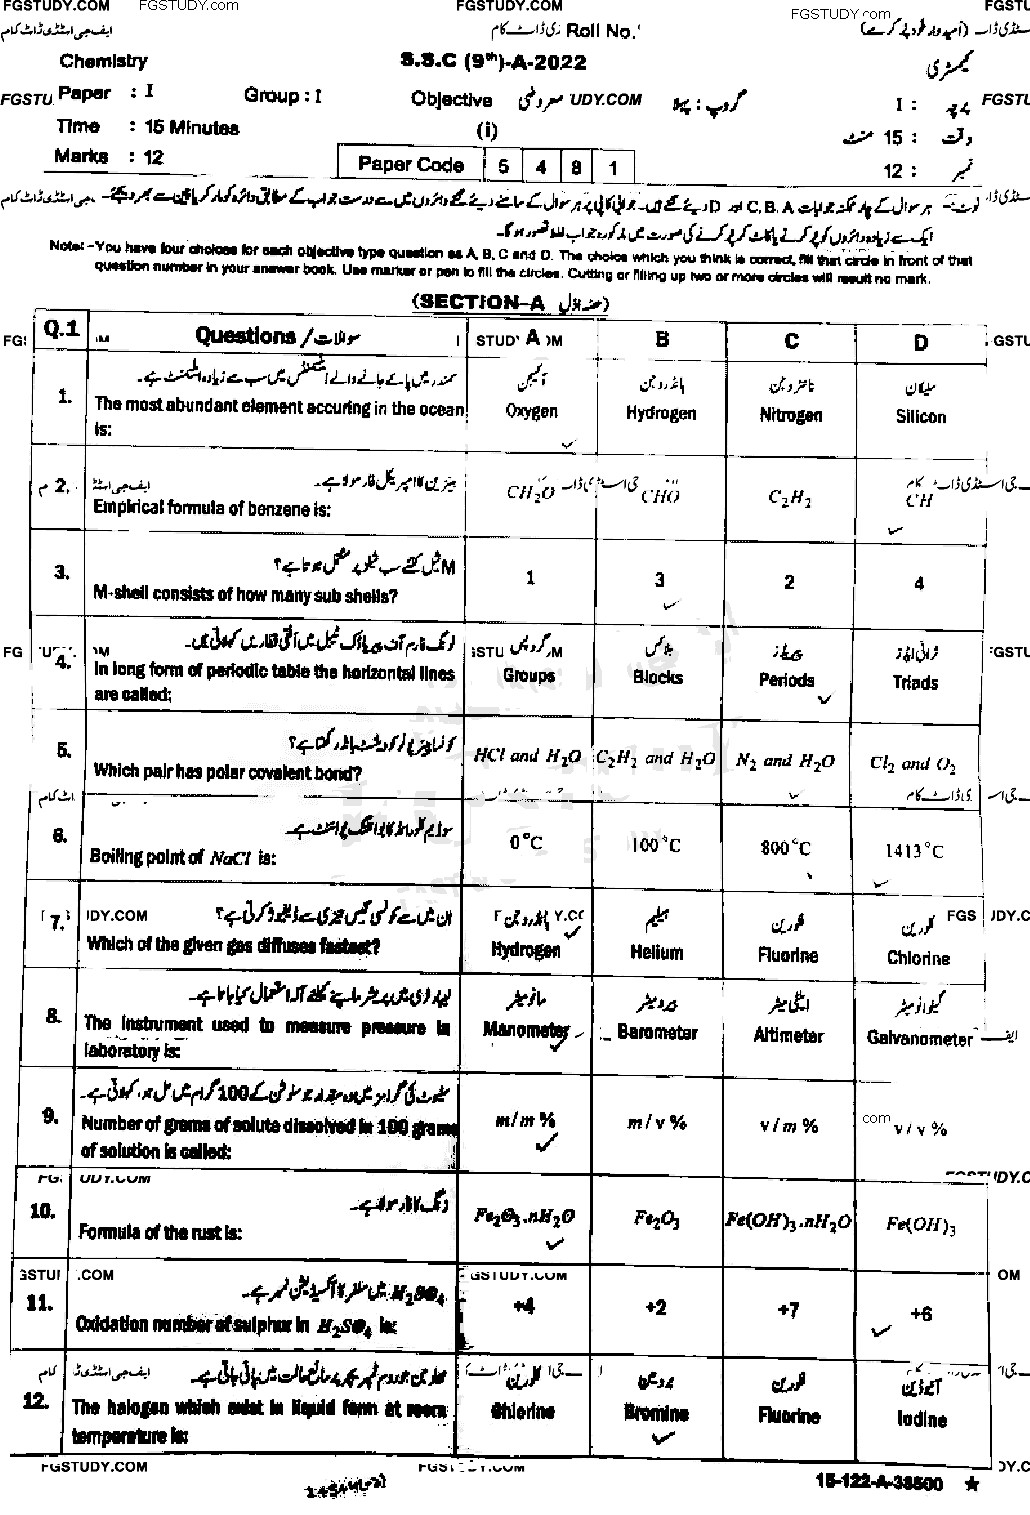 FGSTUDY.COM FGSTUDY.COM FGSTUDY.COM FGSTUDY.com FGSTU
ایف جی اسٹڈی ڈاٹ کام Roll No.
Chemistry S.S.C (9th)-A-2022 کیمسٹری
FGSTU Paper : I Group : I Objective معروضی UDY.COM گروپ : پہلا I : پرچہ FGSTU
Time : 15 Minutes (i) وقت : 15 منٹ
Marks : 12 Paper Code 5 4 8 1 نمبر : 12
Note:-You have four choices for each objective type question as A, B, C and D. The choice which you think is correct, fill that circle in front of that
question number in your answer book. Use marker or pen to fill the circles. Cutting or filling up two or more circles will result no mark.
(SECTION-A حصہ اول)
Q.1 Questions / سوالات A B C D
1. سمندر میں پائے جانے والے
The most abundant element accuring in the ocean is:
آکسیجن Oxygen ہائڈروجن Hydrogen نائٹروجن Nitrogen سلیکان Silicon
2. بینزین کا امپیریکل فارمولا ہے۔
Empirical formula of benzene is:
CH2O CHO C2H2 CH
3. M شیل کتنے سب شیلز پر مشتمل ہوتا ہے؟
M-shell consists of how many sub shells?
1 3 2 4
4. لانگ فارم آف پیریاڈک ٹیبل میں افقی قطاریں کہلاتی ہیں۔
In long form of periodic table the horizontal lines
are called:
گروپس Groups بلاکس Blocks پیریڈز Periods ٹرائی ایڈز Triads
5. کونسا پیئر پولر کوویلنٹ بانڈ رکھتا ہے؟
Which pair has polar covalent bond?
HCl and H2O C2H2 and H2O N2 and H2O Cl2 and O2
6. سوڈیم کلورائیڈ کا بوائلنگ پوائنٹ ہے۔
Boiling point of NaCl is:
0°C 100°C 800°C 1413°C
7. ان میں سے کونسی گیس تیزی سے ڈفیوز کرتی ہے؟
Which of the given gas diffuses fastest?
ہائڈروجن Hydrogen ہیلیم Helium فلورین Fluorine کلورین Chlorine
8. لیبارٹری میں پریشر ماپنے کیلئے آلہ استعمال کیا جاتا ہے۔
The instrument used to measure pressure in
laboratory is:
مانومیٹر Manometer بیرومیٹر Barometer الٹی میٹر Altimeter گیلوانومیٹر Galvanometer
9. Number of grams of solute dissolved in 100 grams
of solution is called:
m/m % m/v % v/m % v/v %
10. زنگ کا فارمولا ہے۔
Formula of the rust is:
Fe2O3.nH2O Fe2O3 Fe(OH)3.nH2O Fe(OH)3
11. H2SO4 میں سلفر کا آکسیڈیشن نمبر ہے۔
Oxidation number of sulphur in H2SO4 is:
+4 +2 +7 +6
12. ہیلوجن جو روم ٹمپریچر پر مائع حالت میں پائی جاتی ہے۔
The halogen which exist in liquid form at room
temperature is:
کلورین Chlorine برومین Bromine فلورین Fluorine آیوڈین Iodine
FGSTUDY.COM
15-122-A-38500 ★